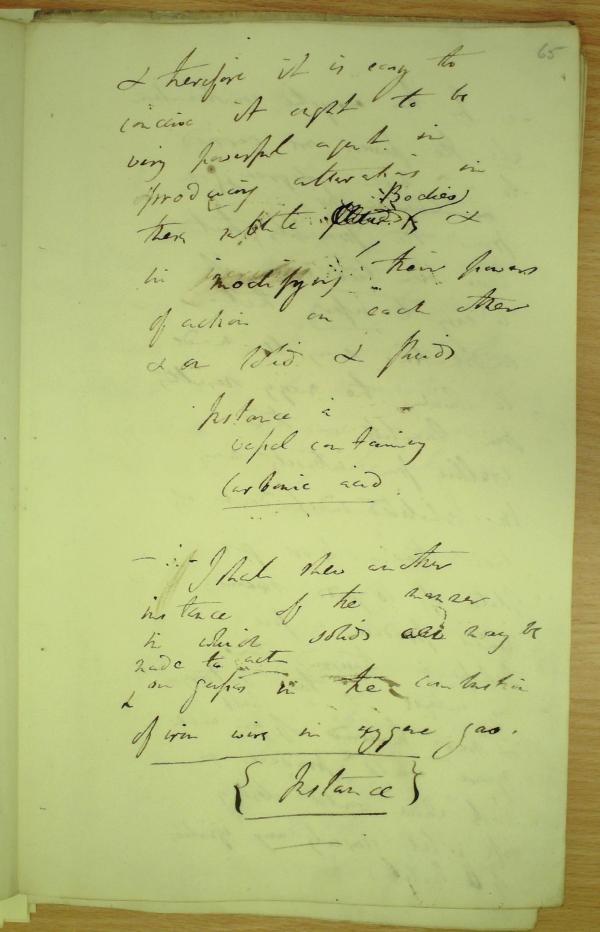 65
& therefore it is easy to
conceive it ought to be
very powerful agent in
producing alterations in
these subtle Bodies &
in modifying their powers
of action on each other
& on solids & fluids
Instance a
vessel containing
Carbonic acid
—:- I shall shew another
instance of the manner
in which solids may be
made to act
& on gasses in the combustion
of iron wire in oxygene gas.
{ Instance }